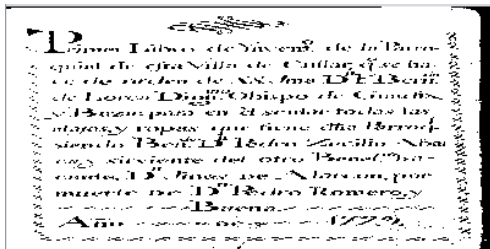 Primer Libro de Yuventº. de la Parro-
quial de esta Villa de Cullar, q̃ se ha-
ce de orden de S.S. Ilma Dn. F. Bern.
de Lorca Digmo. Obispo de Guadix
y Baza para en el sentar todas las
alajas, y ropas que tiene dha Parroq.
siendo Benfdo. Dn. Pedro Zocilio Abar
ca, y sirviente del otro Benefdo. va-
cante, Dn. Gines de Alarcon, por
muerte de Dn. Pedro Romero, y
Baena.
Año de